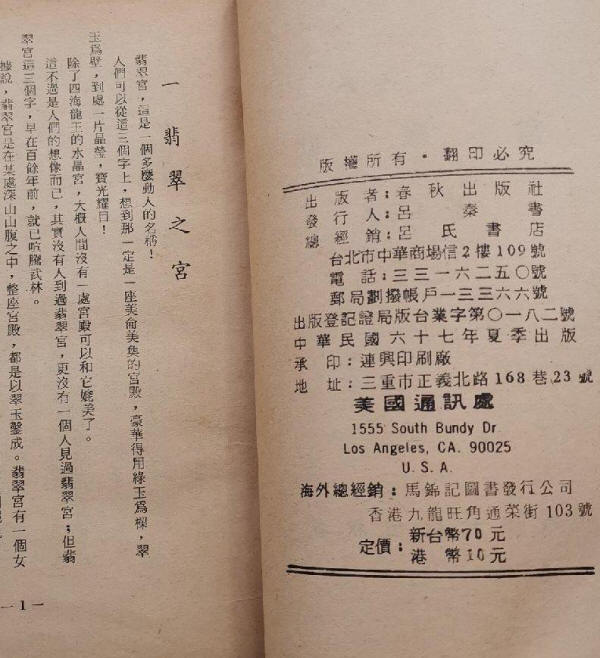 一 翡翠之宮
翡翠宮，這是一個多麼動人的名稱！
人們可以從這三個字上，想到那一定是一座美侖美奐的宮殿，豪華得用綠玉爲樑，翠
玉爲壁，到處一片晶瑩，寶光耀目！
除了四海龍王的水晶宮，大概人間沒有一處宮殿可以和它媲美了。
這不過是人們的想像而已，其實沒有人到過翡翠宮，更沒有一個人見過翡翠宮；但翡
翠宮這三個字，早在百餘年前，就已喧騰武林。
據說，翡翠宮是在某處深山山腹之中，整座宮殿，都是以翠玉鑿成。翡翠宮有一個女
—1—
版權所有·翻印必究
出版者：春秋出版社
發行人：呂秦書
總經銷：呂氏書店
台北市中華商場信2樓109號
電話：三三一六二五〇號
郵局劃撥帳戶一三三六六號
出版登記證局版台業字第〇一八二號
中華民國六十七年夏季出版
承印：連興印刷廠
地址：三重市正義北路168巷23號
美國通訊處
1555 South Bundy Dr.
Los Angeles, CA. 90025
U.S.A.
海外總經銷：馬錦記圖書發行公司
香港九龍旺角通菜街103號
定價：新台幣70元
港幣10元